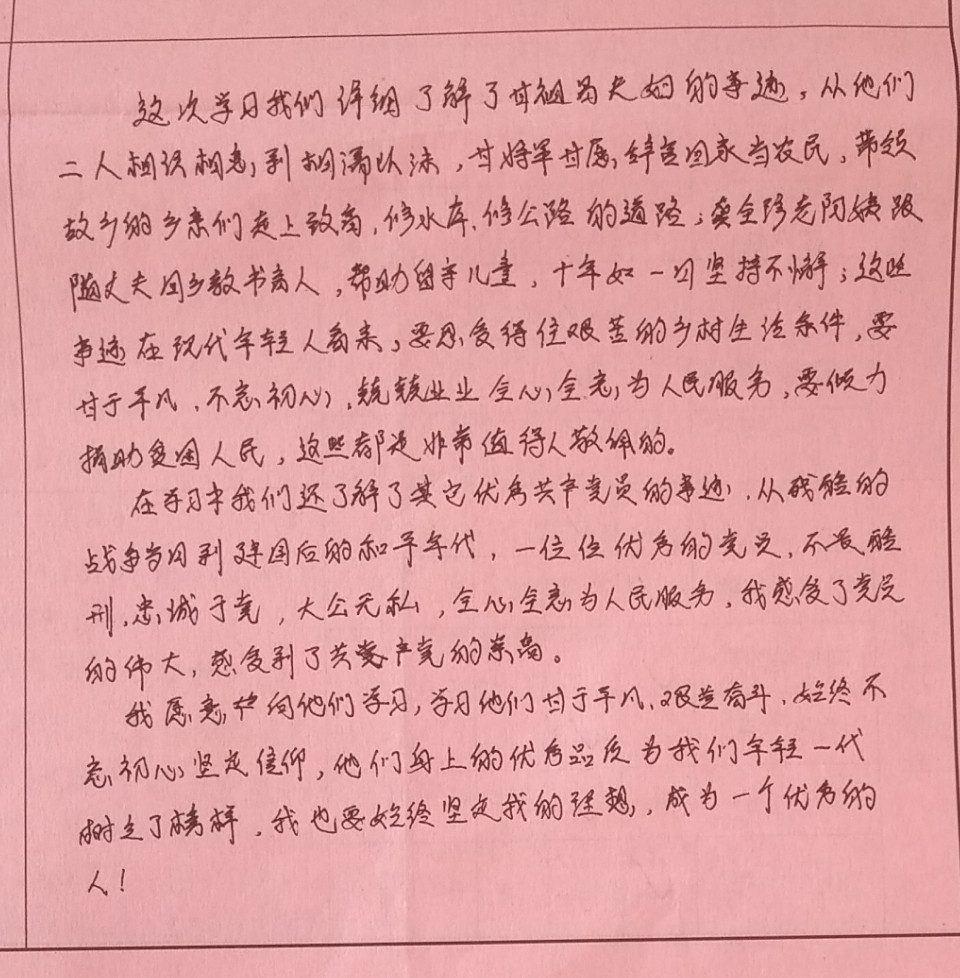 这次学习我们详细了解了甘祖昌夫妇的事迹，从他们
二人相识相恋到相濡以沫，甘将军甘愿辞官回家当农民，带领
故乡的乡亲们走上致富，修水库、修公路的道路；龚全珍老阿姨跟
随丈夫回乡教书育人，帮助留守儿童，十年如一日坚持不懈；这些
事迹在现代年轻人看来，要忍受得住艰苦的乡村生活条件，要
甘于平凡、不忘初心，兢兢业业全心全意为人民服务，要倾力
捐助贫困人民，这些都是非常值得人敬佩的。
在学习中我们还了解了其它优秀共产党员的事迹，从残酷的
战争当日到建国后的和平年代，一位位优秀的党员，不畏酷
刑，忠诚于党，大公无私，全心全意为人民服务，我感受了党员
的伟大，感受到了共产党的崇高。
我愿意向他们学习，学习他们甘于平凡、艰苦奋斗，始终不
忘初心坚定信仰，他们身上的优秀品质为我们年轻一代
树立了榜样，我也要始终坚定我的理想，成为一个优秀的
人！